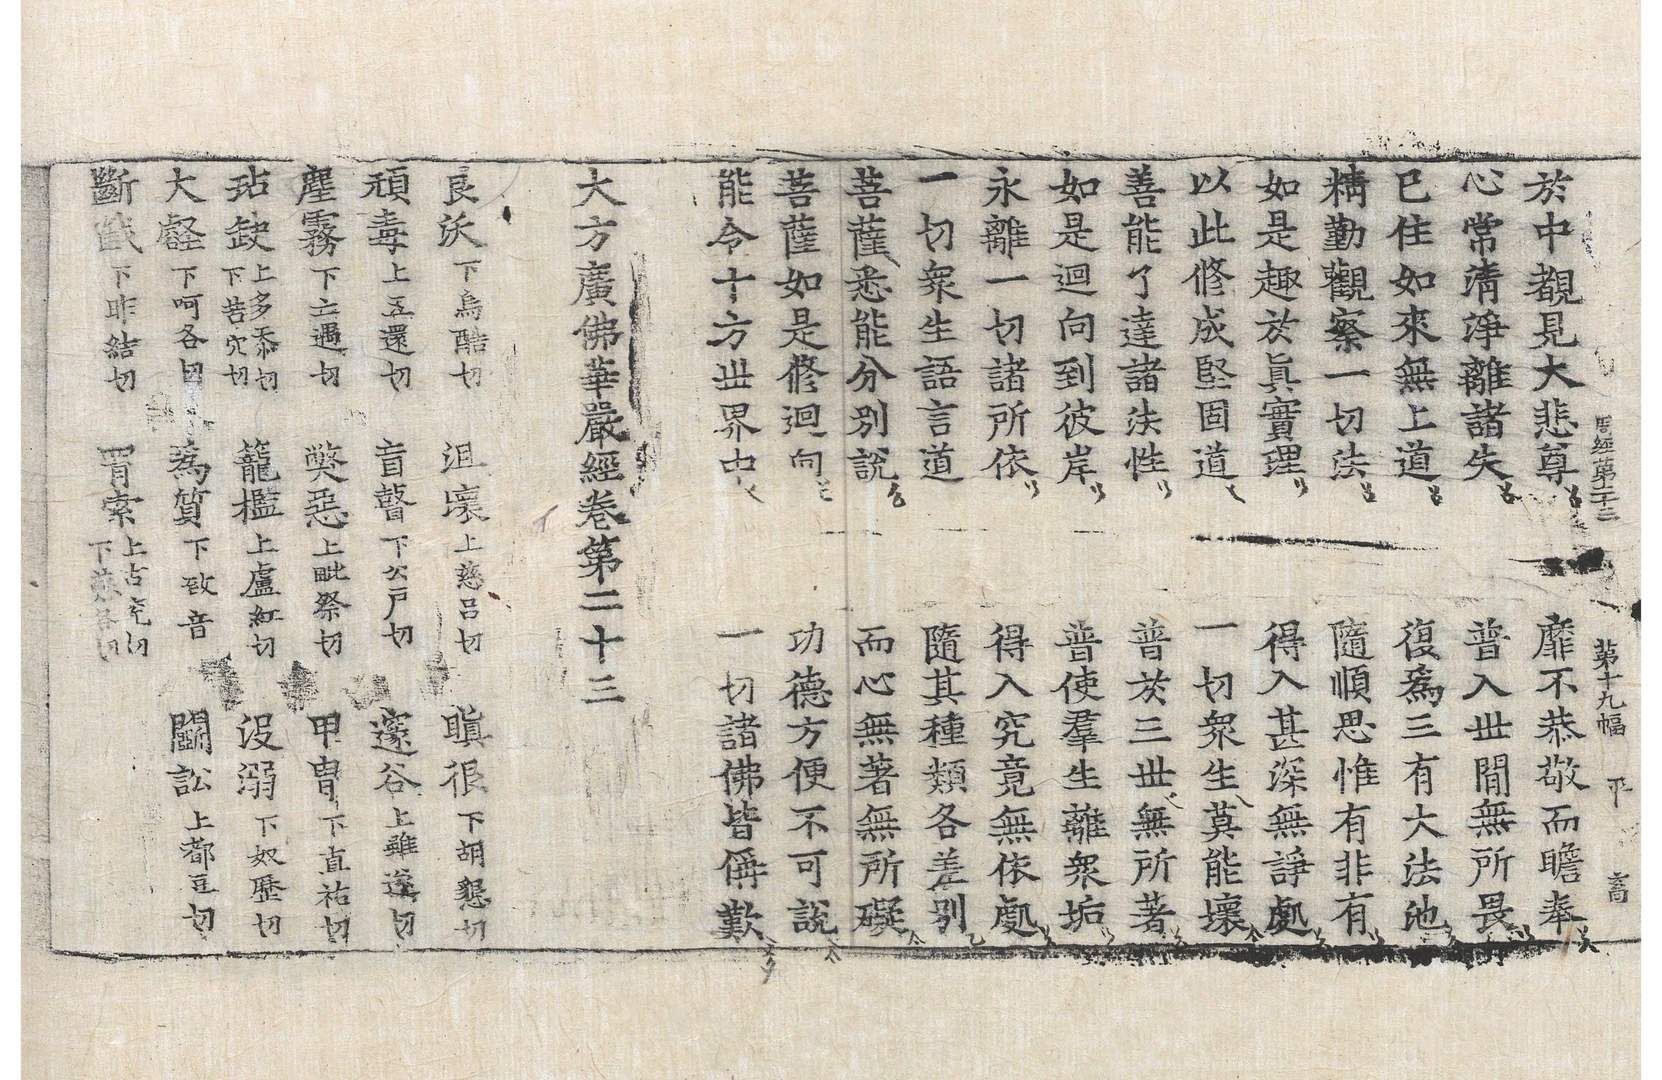 周經第二十三 第十九幅 平
於中覩見大悲尊 靡不恭敬而瞻奉
心常清淨離諸失 普入世閒無所畏
已住如來無上道 復爲三有大法池
精勤觀察一切法 隨順思惟有非有
如是趣於真實理 得入甚深無諍處
以此修成堅固道 一切衆生莫能壞
善能了達諸法性 普於三世無所著
如是迴向到彼岸 普使羣生離衆垢
永離一切諸所依 得入究竟無依處
一切衆生語言道 隨其種類各差別
菩薩悉能分別說 而心無著無所礙
菩薩如是修迴向 功德方便不可說
能令十方世界中 一切諸佛皆偁歎
大方廣佛華嚴經卷第二十三
良沃下烏酷切 沮壞上慈呂切 瞋很下胡懇切
頑毒上五還切 盲瞽下公戶切 邃谷上雖遂切
塵霧下亡遇切 弊惡上毗祭切 甲冑下直祐切
玷缺上多忝切下苦穴切 籠檻上盧紅切 沒溺下奴歷切
大壑下呵各切 爲質下致音 鬭訟上都豆切
斷截下昨結切 罥索上古泫切下蘇各切